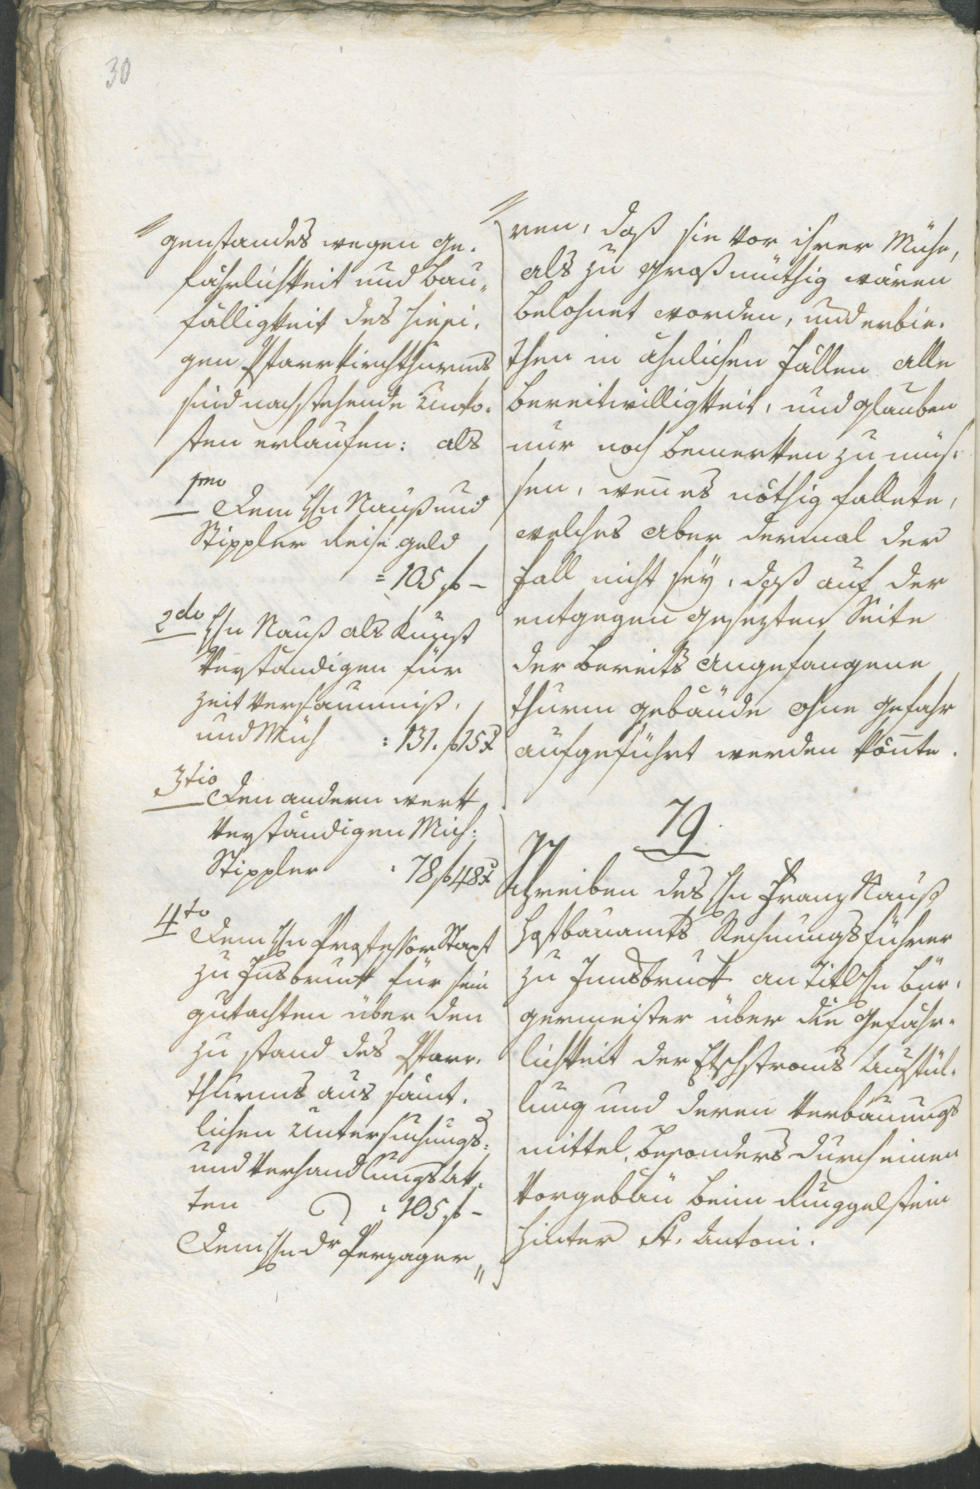 30
genstandes wegen ge-
fährlichkeit und bau-
fälligkeit des hiesi-
gen Pfarrkirchthurms
sind nachstehende Unko-
sten erlaufen: als
1mo Dem Hn Nauß und
Stippler Reise geld
= 105 f –
2do Hn Nauß als Kunst
Verständigen für
Zeit Versäumniß,
und Müh : 131. f 15 x
3tio Den andern werk
Verständigen Mich:
Stippler : 78 f 48 x
4to Dem Hn Professor Stapf
zu Insbruck für sein
gutachten über den
zustand des Pfarr-
thurms aus sämt-
lichen Untersuchungs-
und Verhandlungs Ak-
ten : 105 f –
Dem Hn Dr
ren, daß sie vor ihrer Mühe,
als zu großmüthig wären
belohnet worden, und erbie-
then in ähnlichen Fällen alle
Bereitwilligkeit, und glauben
nur noch bemerken zu müs-
sen, wen es nöthig fallete,
welches aber dermal der
Fall nicht sey, daß auf der
entgegen gesezten Seite
der bereits angefangene
Thurm gebäude ohne gefahr
aufgeführt werden könte.
79.
Schreiben des Hn Franz Nauß
Hofbauamts Rechnungsführer
zu Innsbruck an Titl Hn bür-
germeister über die Gefähr-
lichkeit der Etschstroms Ausfül-
lung und deren Verbauungs
mittel, besonders durch einen
Vorgebäu beim Runggelstein
hinter St. Antoni.